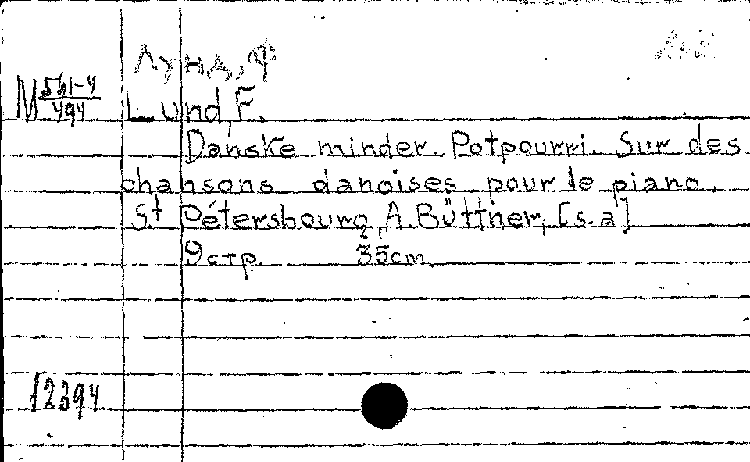 Лунд, Ф
М 551-4/494
Lund, F.
Danske minder. Potpourri. Sur des
chansons danoises pour le piano.
St Pétersbourg, A. Büttner, [s.a]
9 стр. 35cm.
12394